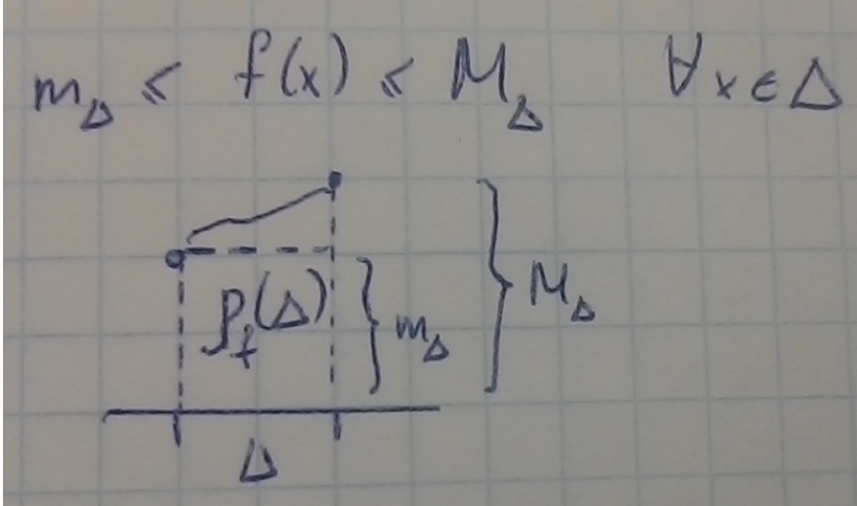 m_Δ ≤ f(x) ≤ M_Δ ∀x∈Δ
ρ_f(Δ) } m_Δ } M_Δ
Δ